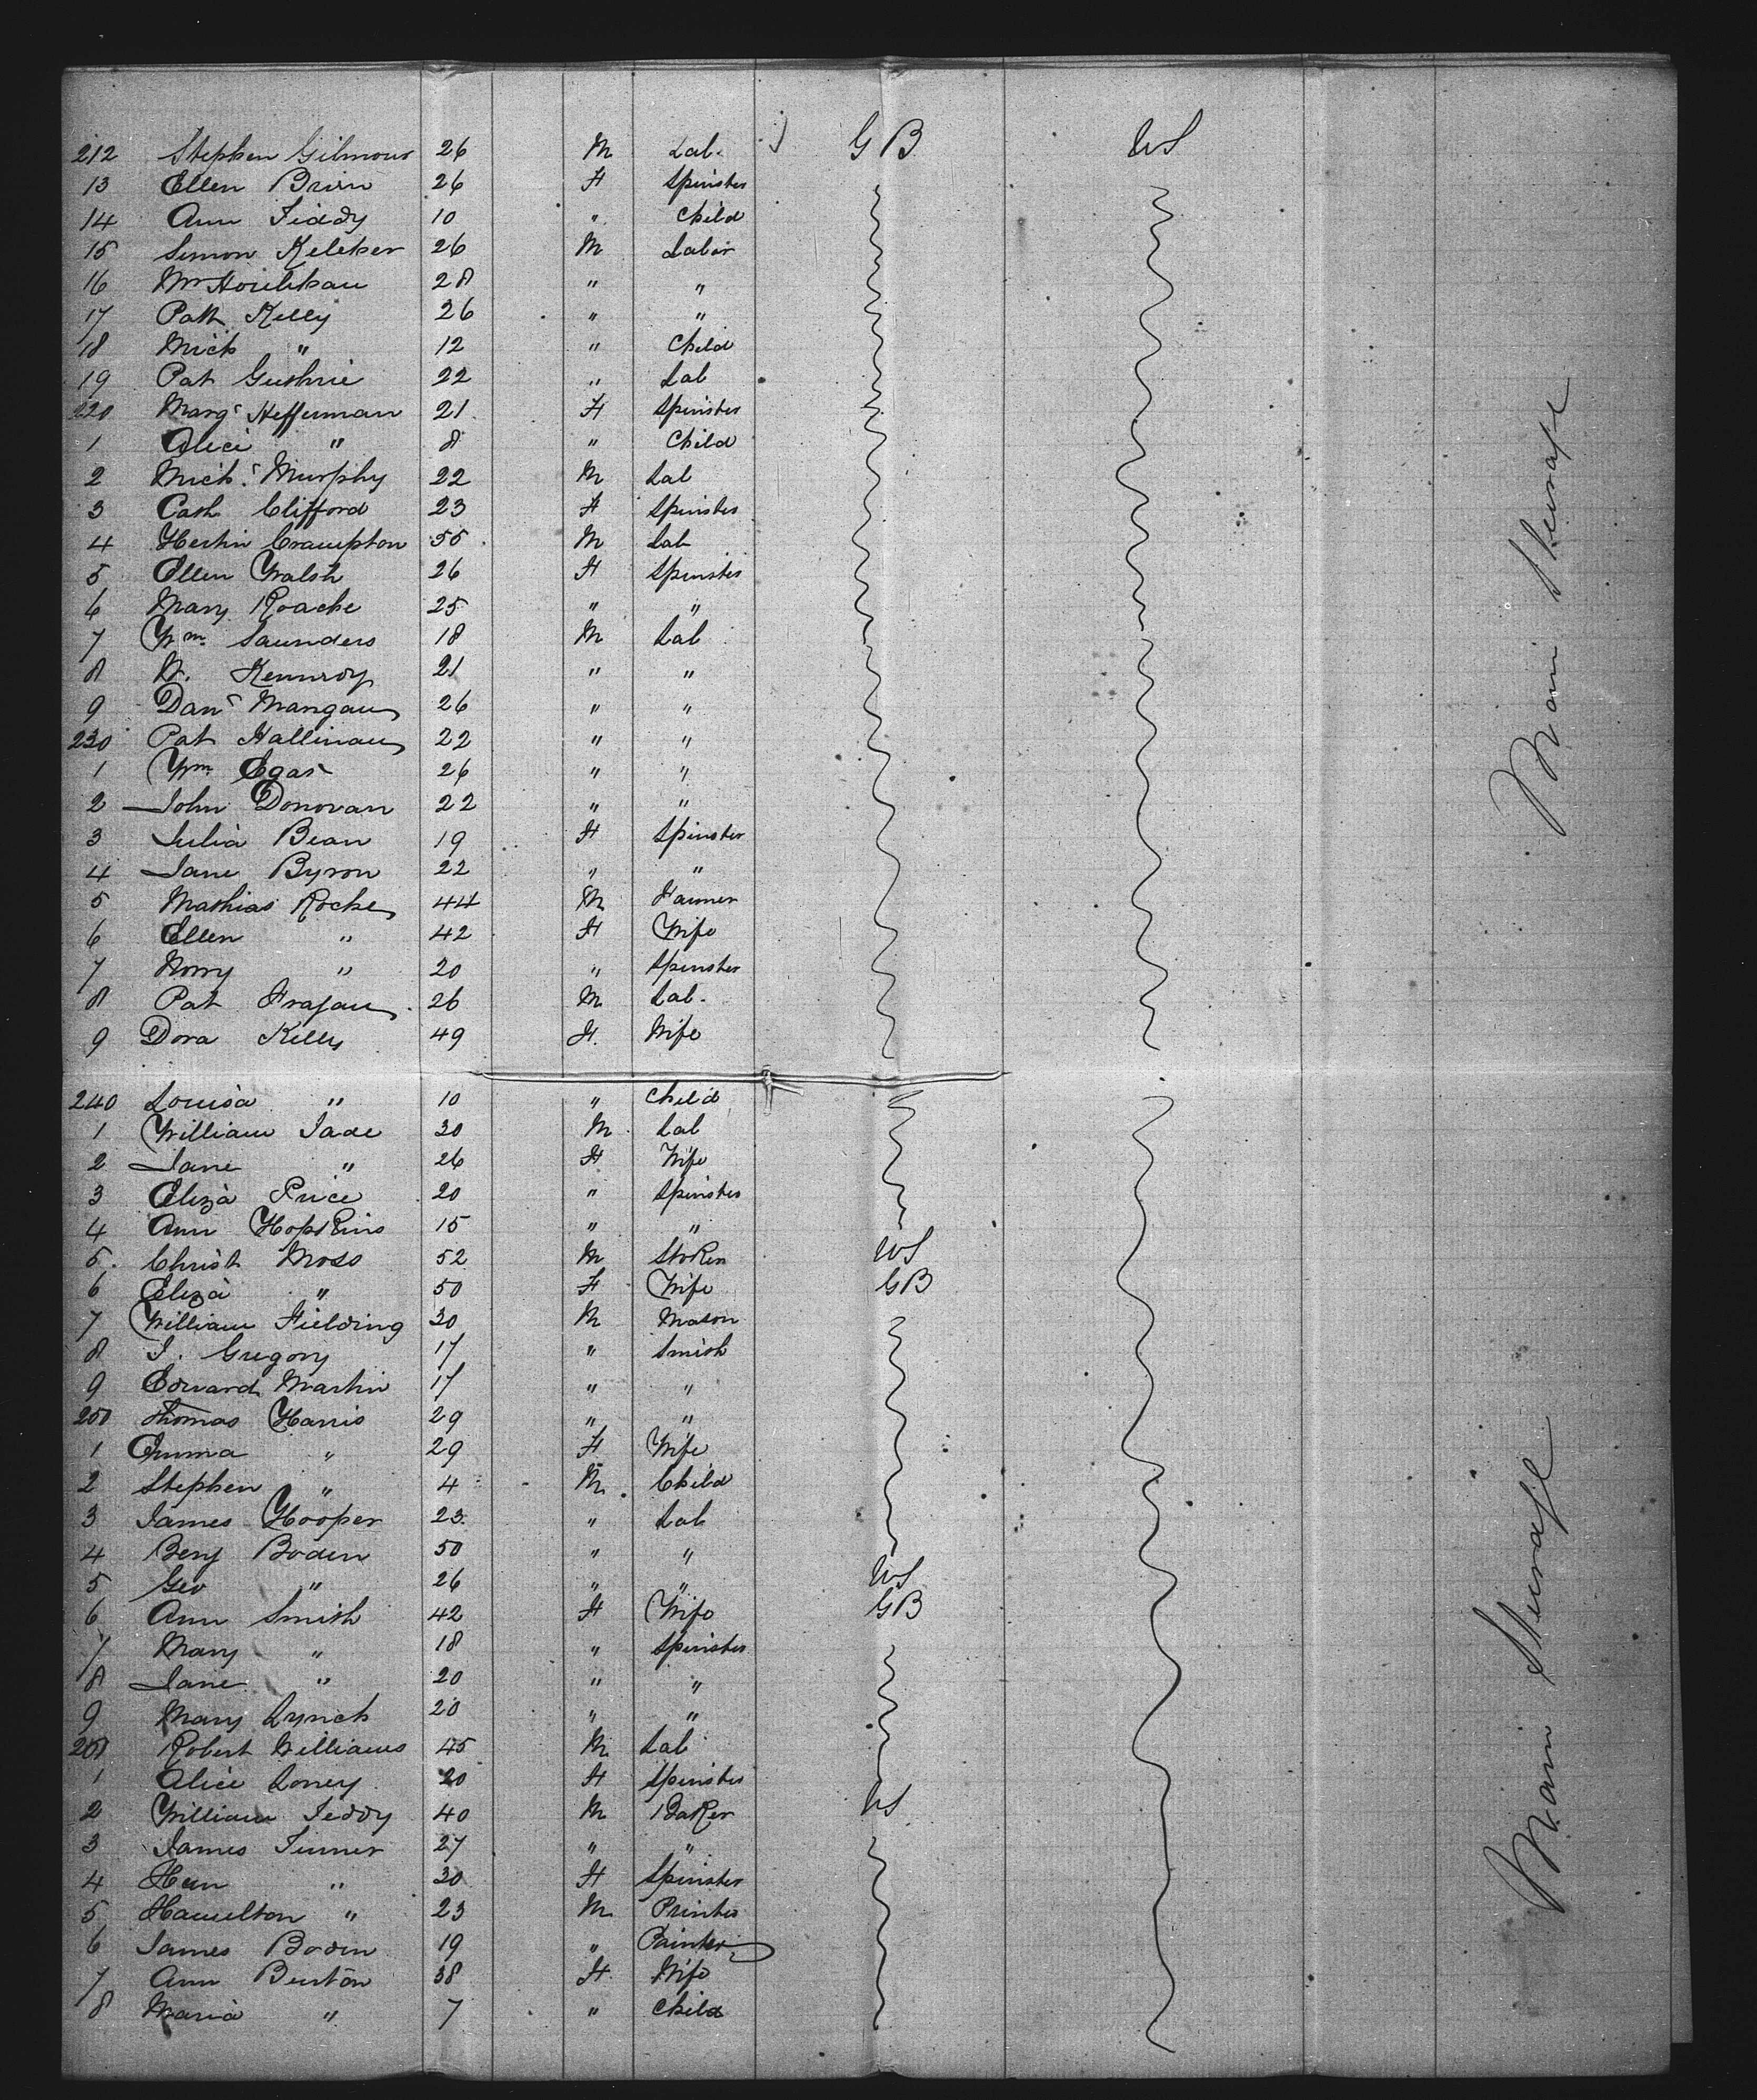 212 Stephen Gilmour 26 M Lab. G B US
13 Ellen Brien 26 F Spinster
14 Ann Fiddy 10 " Child
15 Simon Keleher 26 M Labor
16 Wm Houlihan 28 " "
17 Patk Kelly 26 " "
18 Mich " 12 " Child
19 Pat Guthrie 22 " Lab
220 Margt Heffernan 21 F Spinster
1 Alice " 8 " Child
2 Michl Murphy 22 M Lab
3 Cath Clifford 23 F Spinster
4 Crampton 55 M Lab
5 Ellen Walsh 26 F Spinster
6 Mary Roache 25 " "
7 Wm Saunders 18 M Lab
8 Kennedy 21 " "
9 Danl Mangan 26 " "
230 Pat Hallinan 22 " "
1 Wm Egar 26 " "
2 John Donovan 22 " "
3 Julia Bean 19 F Spinster
4 Jane Byron 22 " "
5 Mathias Roche 44 M Farmer
6 Ellen " 42 F Wife
7 Norry " 20 " Spinster
8 Pat 26 M Lab.
9 Dora Kelly 49 F. Wife
Main Steerage
240 Louisa " 10 " Child
1 William Jade 30 M Lab
2 Jane " 26 F Wife
3 Eliza Price 20 " Spinster
4 Ann Hopkins 15 " "
5 Christ Moss 52 M US
6 Eliza " 50 F Wife GB
7 William Fielding 30 M Mason
8 J. Gregory 17 " Smith
9 Edward Martin 17 " "
250 Thomas Harris 29 " "
1 Emma " 29 F Wife
2 Stephen " 4 M Child
3 James Hooper 23 " Lab
4 Benj Boden 50 " "
5 Geo " 26 " " US
6 Ann Smith 42 F Wife GB
7 Mary " 18 " Spinster
8 Jane " 20 " "
9 Mary Lynch 20 " "
260 Robert Williams 45 M Lab
1 Alice Loney 20 F Spinster
2 William Jeddy 40 M Baker US
3 James 27 " "
4 " 30 F Spinster
5 Hamelton " 23 M Printer
6 James Boden 19 " Painter
7 Ann Burton 38 F Wife
8 Maria " 7 " Child
Main Steerage